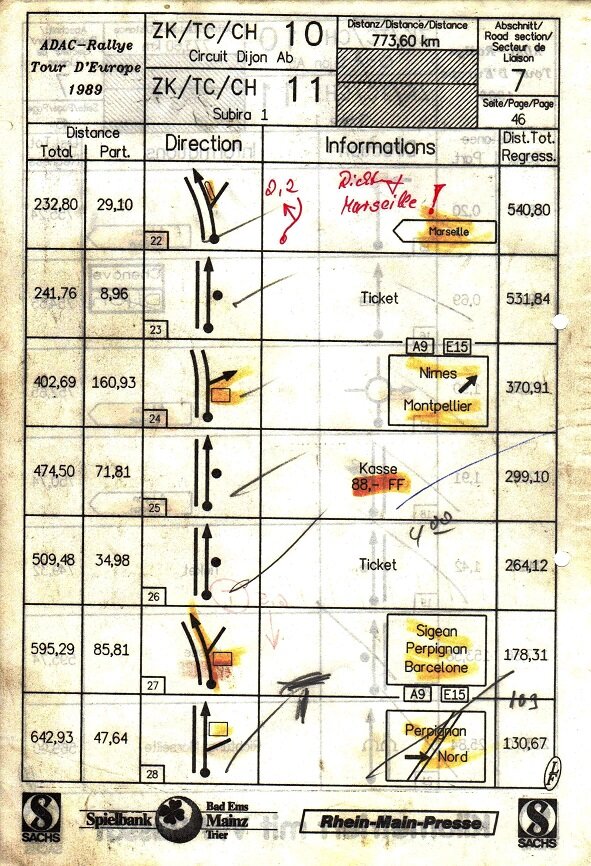 ADAC-Rallye
Tour D'Europe
1989
ZK/TC/CH 10
Circuit Dijon Ab
ZK/TC/CH 11
Subira 1
Distanz/Distance/Distance
773,60 km
Abschnitt/
Road section/
Secteur de
Liaison
7
Seite/Page/Page
46
Distance
Total Part.
Direction
Informations
Dist.Tot.
Regress.
232,80 29,10
22
2,2
Marseille !
Marseille
540,80
241,76 8,96
23
Ticket
531,84
402,69 160,93
24
A9 E15
Nimes
Montpellier
370,91
474,50 71,81
25
Kasse
88,- FF
299,10
509,48 34,98
26
Ticket
400
264,12
595,29 85,81
27
Sigean
Perpignan
Barcelone
A9 E15
178,31
103
642,93 47,64
28
Perpignan
Nord
130,67
SACHS
Spielbank
Bad Ems
Mainz
Trier
Rhein-Main-Presse
SACHS